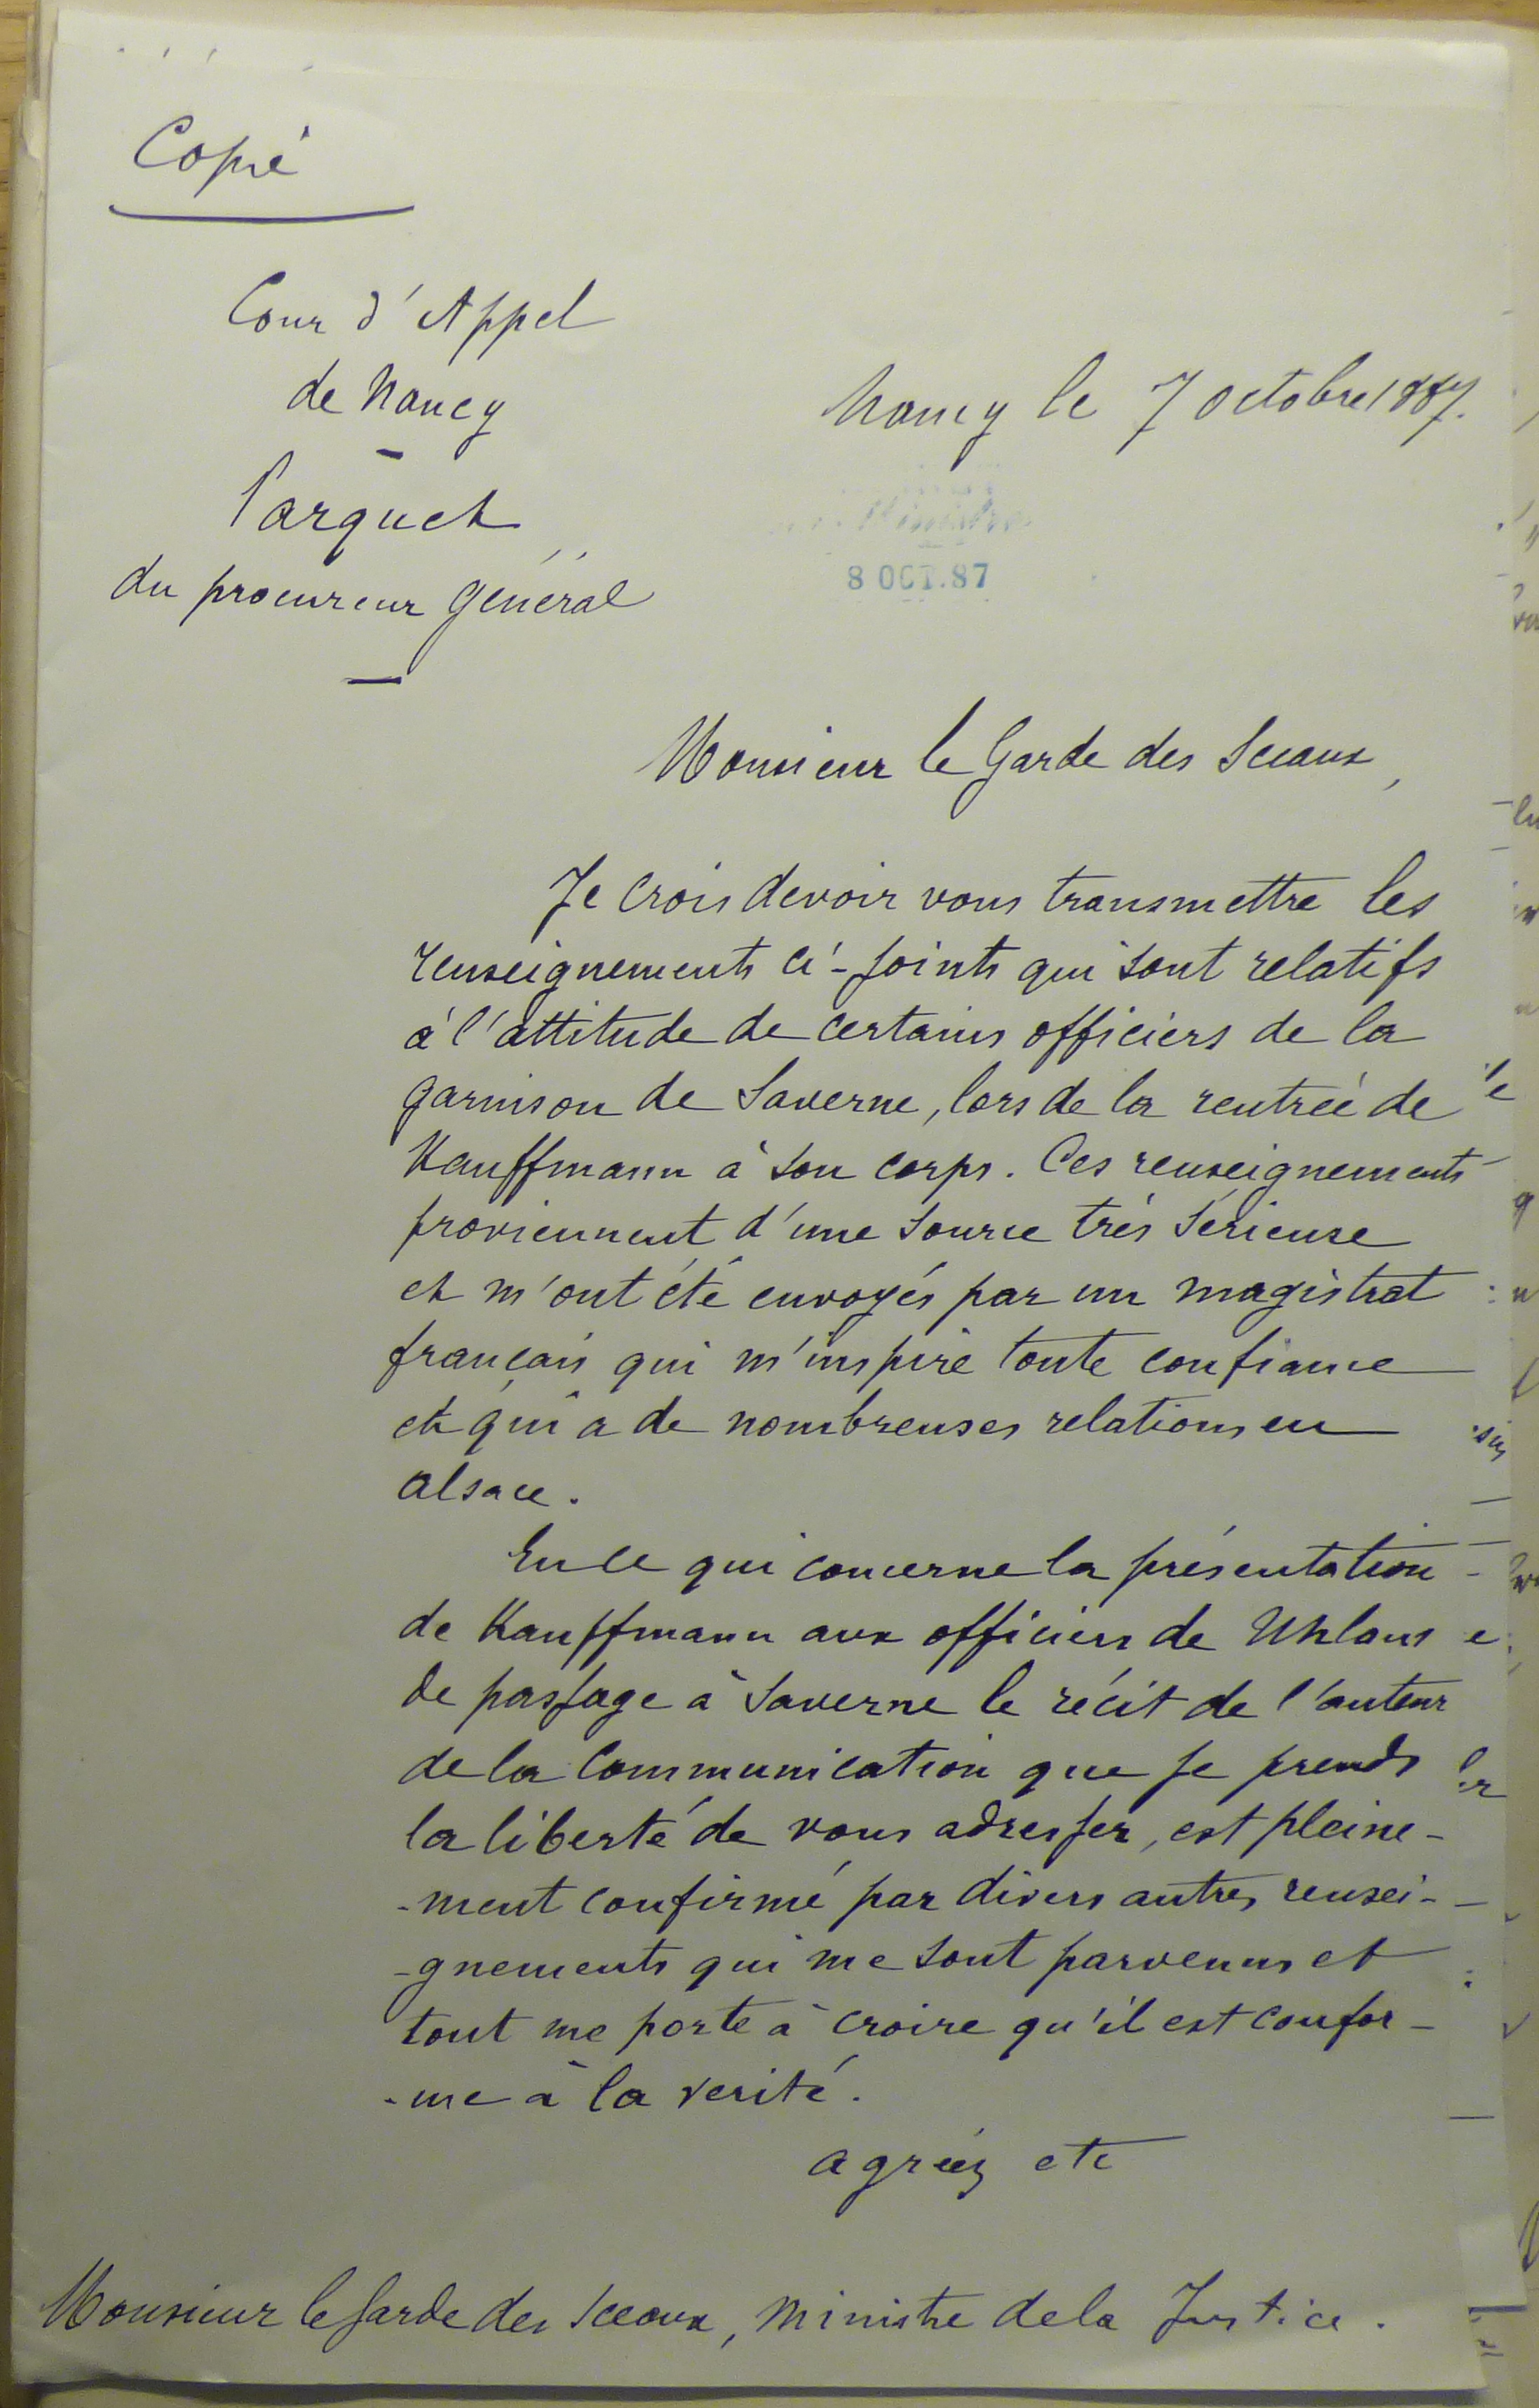 Copie
Cour d'Appel
de Nancy
Parquet
du procureur général
Nancy le 7 octobre 1887.
8 OCT. 87
Monsieur le Garde des Sceaux,
Je crois devoir vous transmettre les
renseignements ci-joints qui sont relatifs
à l'attitude de certains officiers de la
garnison de Saverne, lors de la rentrée de
Kauffmann à son corps. Ces renseignements
proviennent d'une source très sérieuse
et m'ont été envoyés par un magistrat
français qui m'inspire toute confiance
et qui a de nombreuses relations en
alsace.
En ce qui concerne la présentation
de Kauffmann aux officiers de Uhlans
de passage à Saverne le récit de l'auteur
de la communication que je prends
la liberté de vous adresser, est pleine-
-ment confirmé par divers autres rensei-
-gnements qui me sont parvenus et
tout me porte à croire qu'il est confor-
-me à la verité.
agréez etc
Monsieur le Garde des Sceaux, Ministre de la Justice.